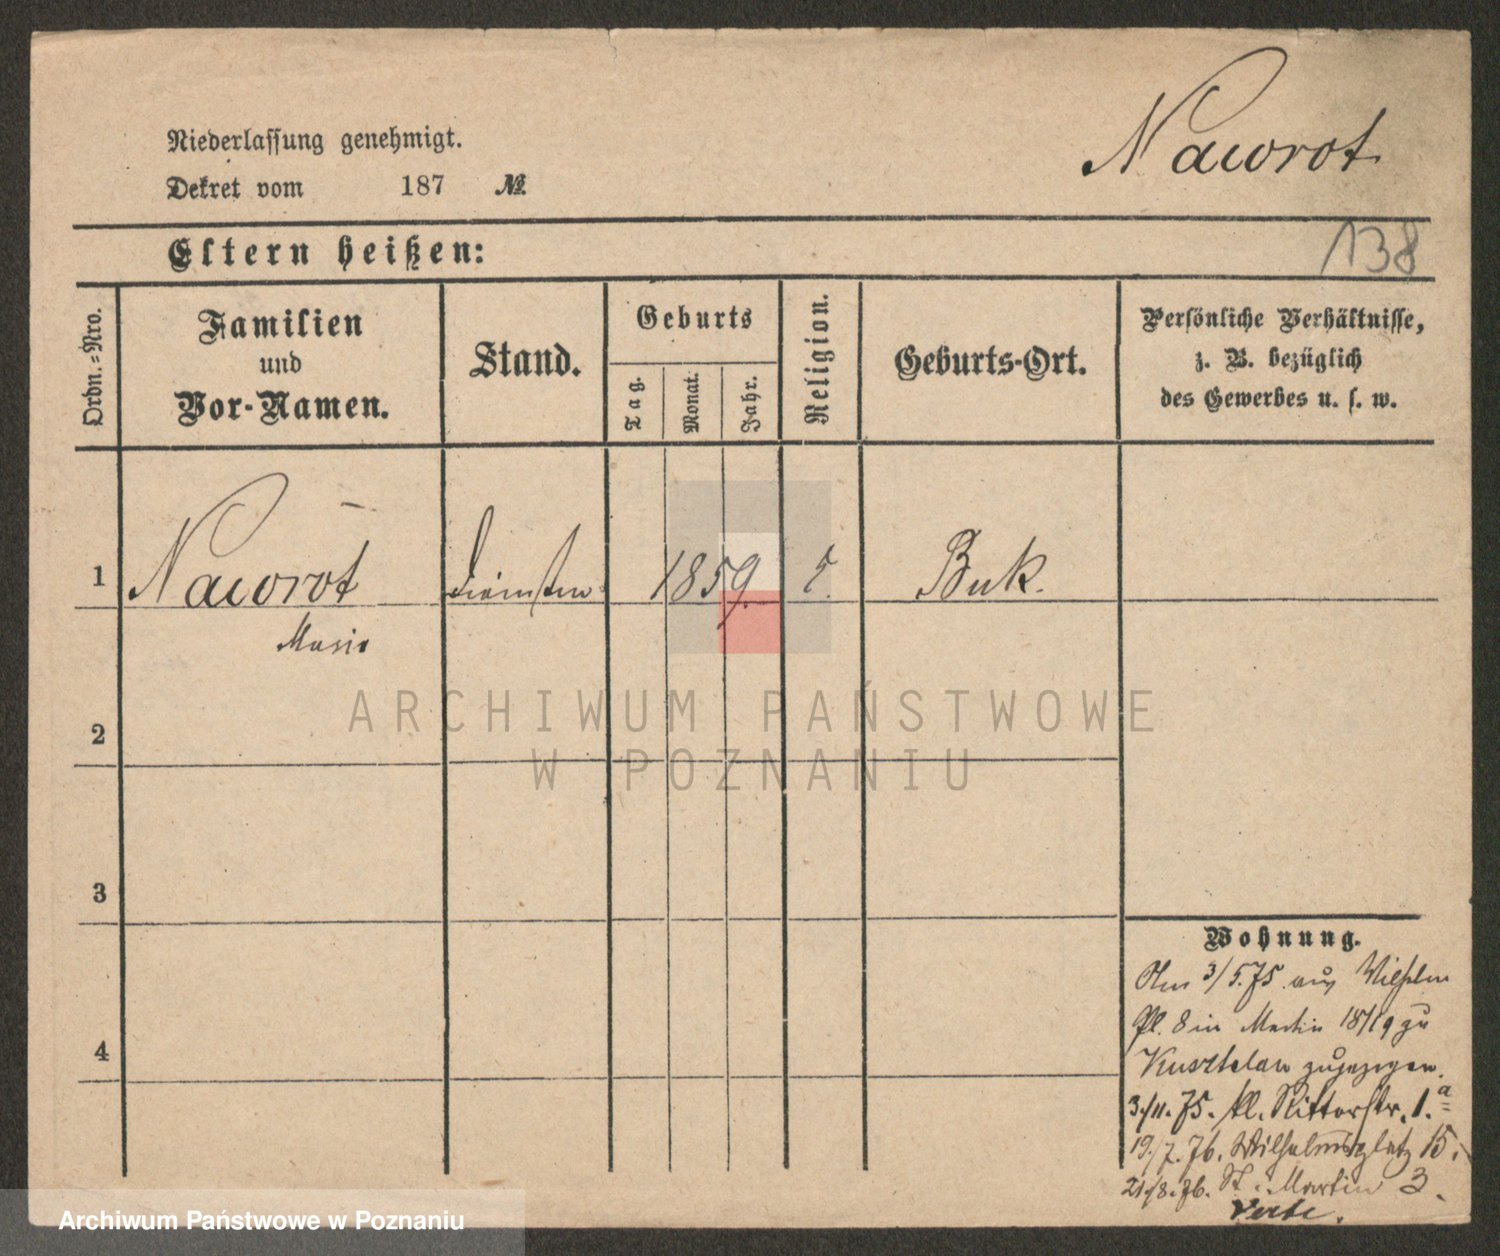 Nawrot
Niederlassung genehmigt.
Dekret vom 187 №
138
Eltern heißen:
Ordn.-Nro.
Familien
und
Vor-Namen.
Stand.
Geburts
Tag.
Monat.
Jahr.
Religion.
Geburts-Ort.
Persönliche Verhältnisse,
z. B. bezüglich
des Gewerbes u. s. w.
1 Nawrot 1859. Buk.
2
ARCHIWUM PAŃSTWOWE
W POZNANIU
3
Wohnung.
3/5.75. aus Wilhelm
Pl. 8 in Martin 18/19 zu
zugezogen.
4
3./11.75. kl. Ritterstr. 1.a
19./7.76. Wilhelmsplatz 15.
21./8.76. St. Martin 3.
Archiwum Państwowe w Poznaniu